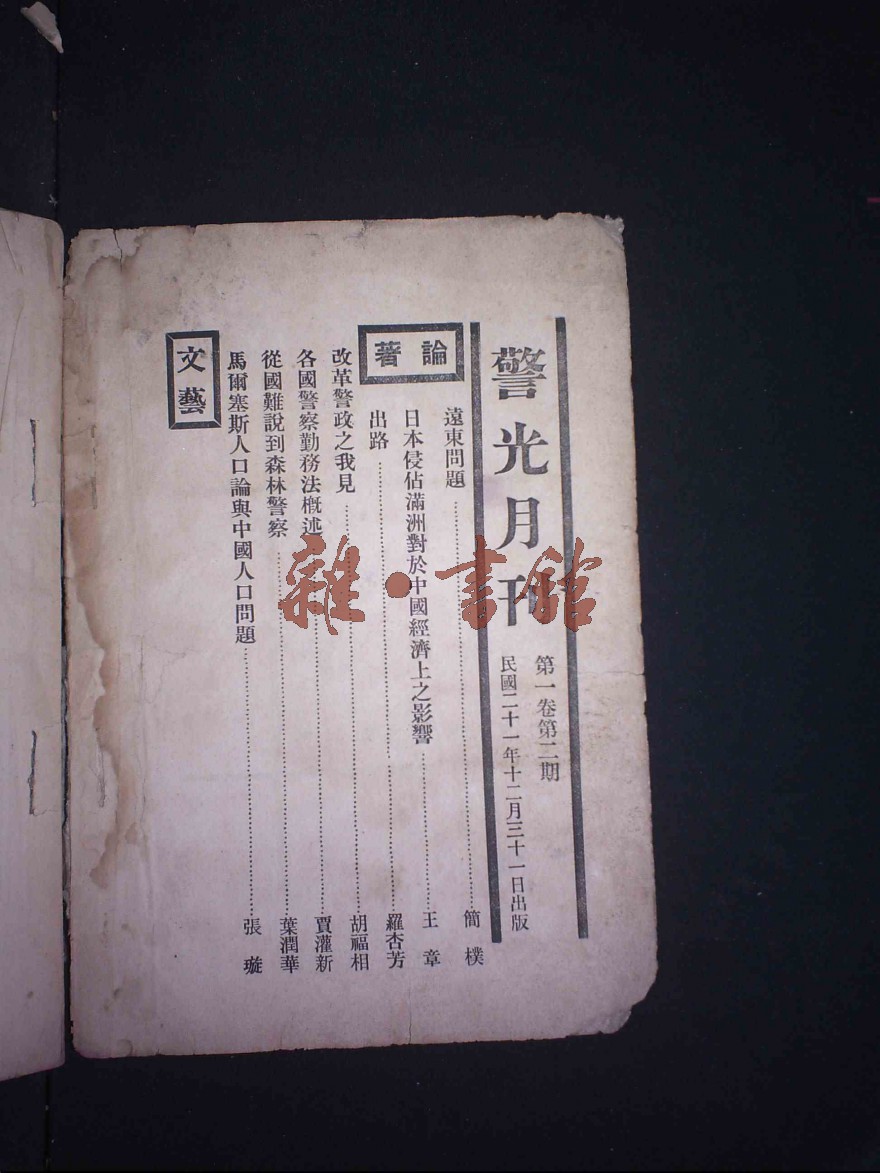 警光月刊
第一卷第二期
民國二十一年十二月三十一日出版
論著
遠東問題……簡樸
日本侵佔滿洲對於中國經濟上之影響……王章
出路……羅杏芳
改革警政之我見……胡福相
各國警察勤務法概述……賈灌新
從國難說到森林警察……葉潤華
馬爾塞斯人口論與中國人口問題……張璇
文藝
雜·書館